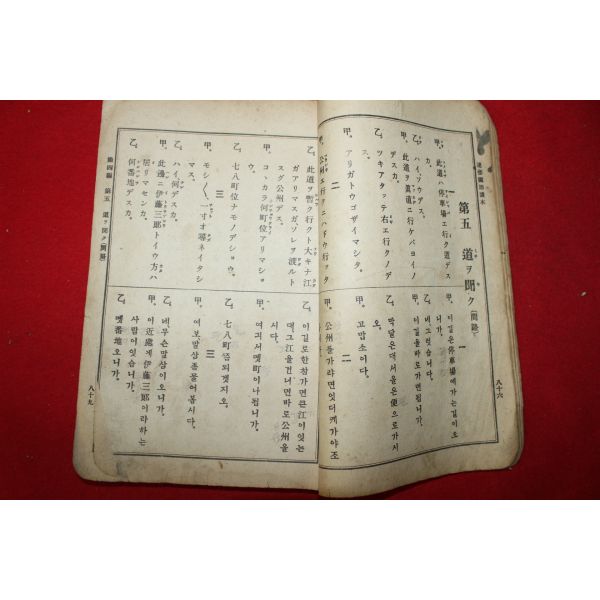 八十六
第五 道ヲ聞ク(問路)
一
甲、此道ハ停車場エ行ク道デス
カ。
乙、ハイ、ソウデス。
甲、此道ヲ眞直ニ行ケバヨイノ
デスカ。
乙、ツキアタッテ右エ行クノデ
ス。
甲、アリガトウゴザイマシタ。
二
甲、公州エ行クニハドウ行ッタ
一
甲、이길은停車場에가는길이오
니가。
乙、네그럿습니다。
甲、이길을바로가면됩니가。
乙、막달은데서올은便으로가시
오。
甲、고맙소이다。
二
甲、公州를가랴면엇더케가야죠
乙、此道ヲ暫ク行クト大キナ江
ガアリマスガソレヲ渡ルト
スグ公州デス。
甲、コヽカラ何町位アリマショ
乙、七八町位ナモノデショウ。
三
甲、モシ〱、一寸オ尋ネイタシ
マス。
乙、ハイ、何デスカ。
甲、此邊ニ伊藤三郎トイウ方ハ
居リマセンカ。
乙、何番地デスカ。
乙、이길로한참가면큰江이잇는
대그江을건너면바로公州을
시다。
甲、여긔서몟町이나됩니가。
乙、七八町쯤되겟지오。
三
甲、여보、말삼좀물어봅시다。
乙、네、무슨말삼이오니가。
甲、이近處게伊藤三郎이라하는
사람이잇습니가。
乙、몟番地오니가。
第四編 第五 道ヲ聞ク(問路)
八十九